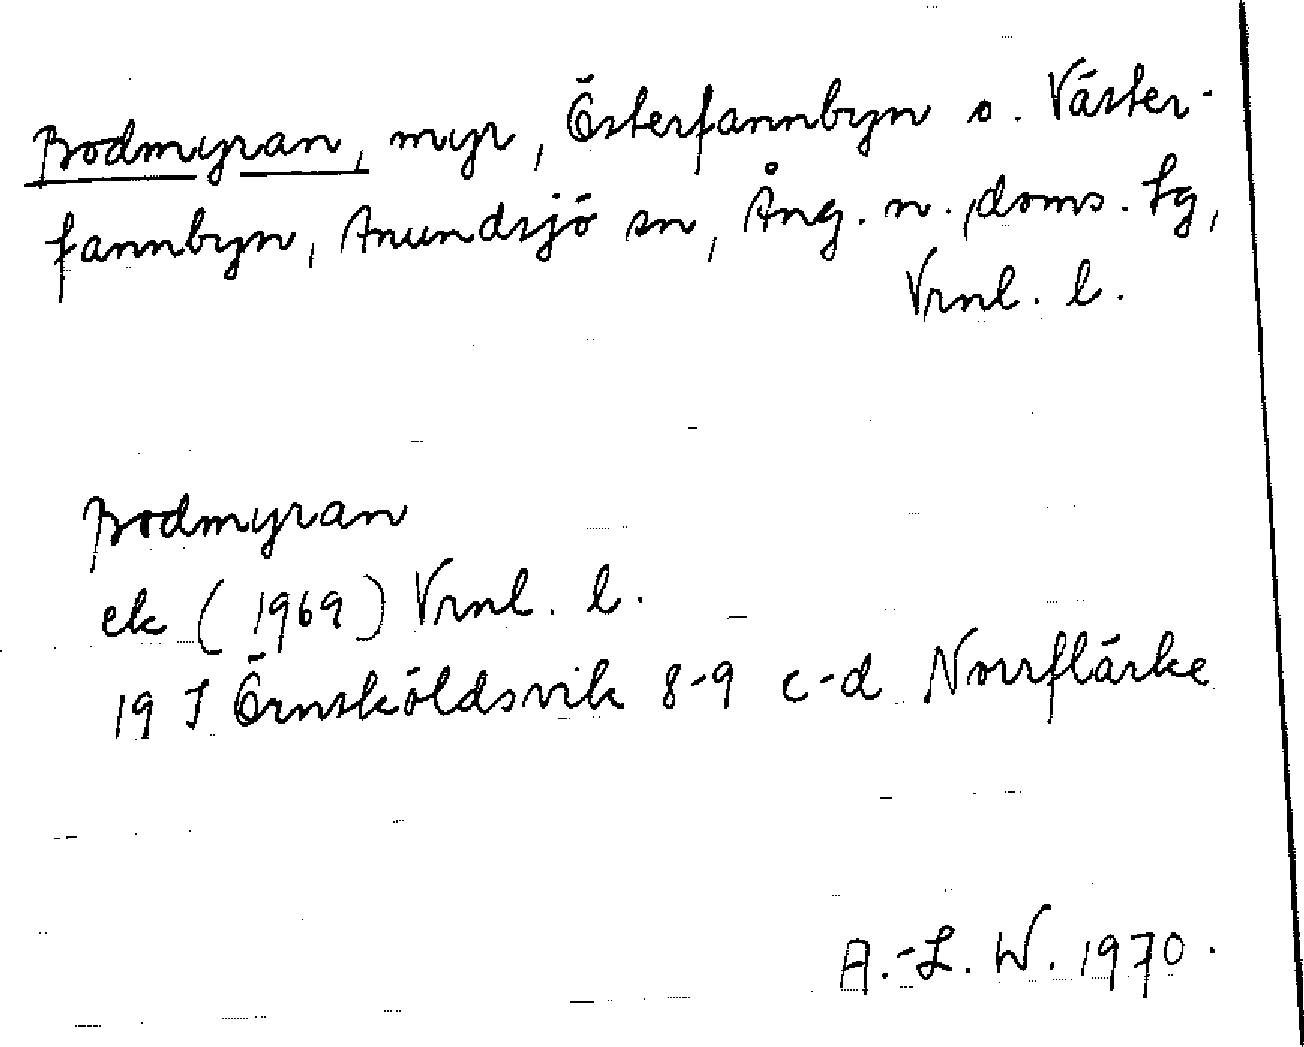 Bodmyran, myr, Österfannbyn o. Väster-
fannbyn, Anundsjö sn, Ång. n. doms. tg,
Vrnl. l.
Bodmyran
ek (1969) Vrnl. l.
19 I Örnsköldsvik 8-9 c-d Norrflärke
A.-L. W. 1970.